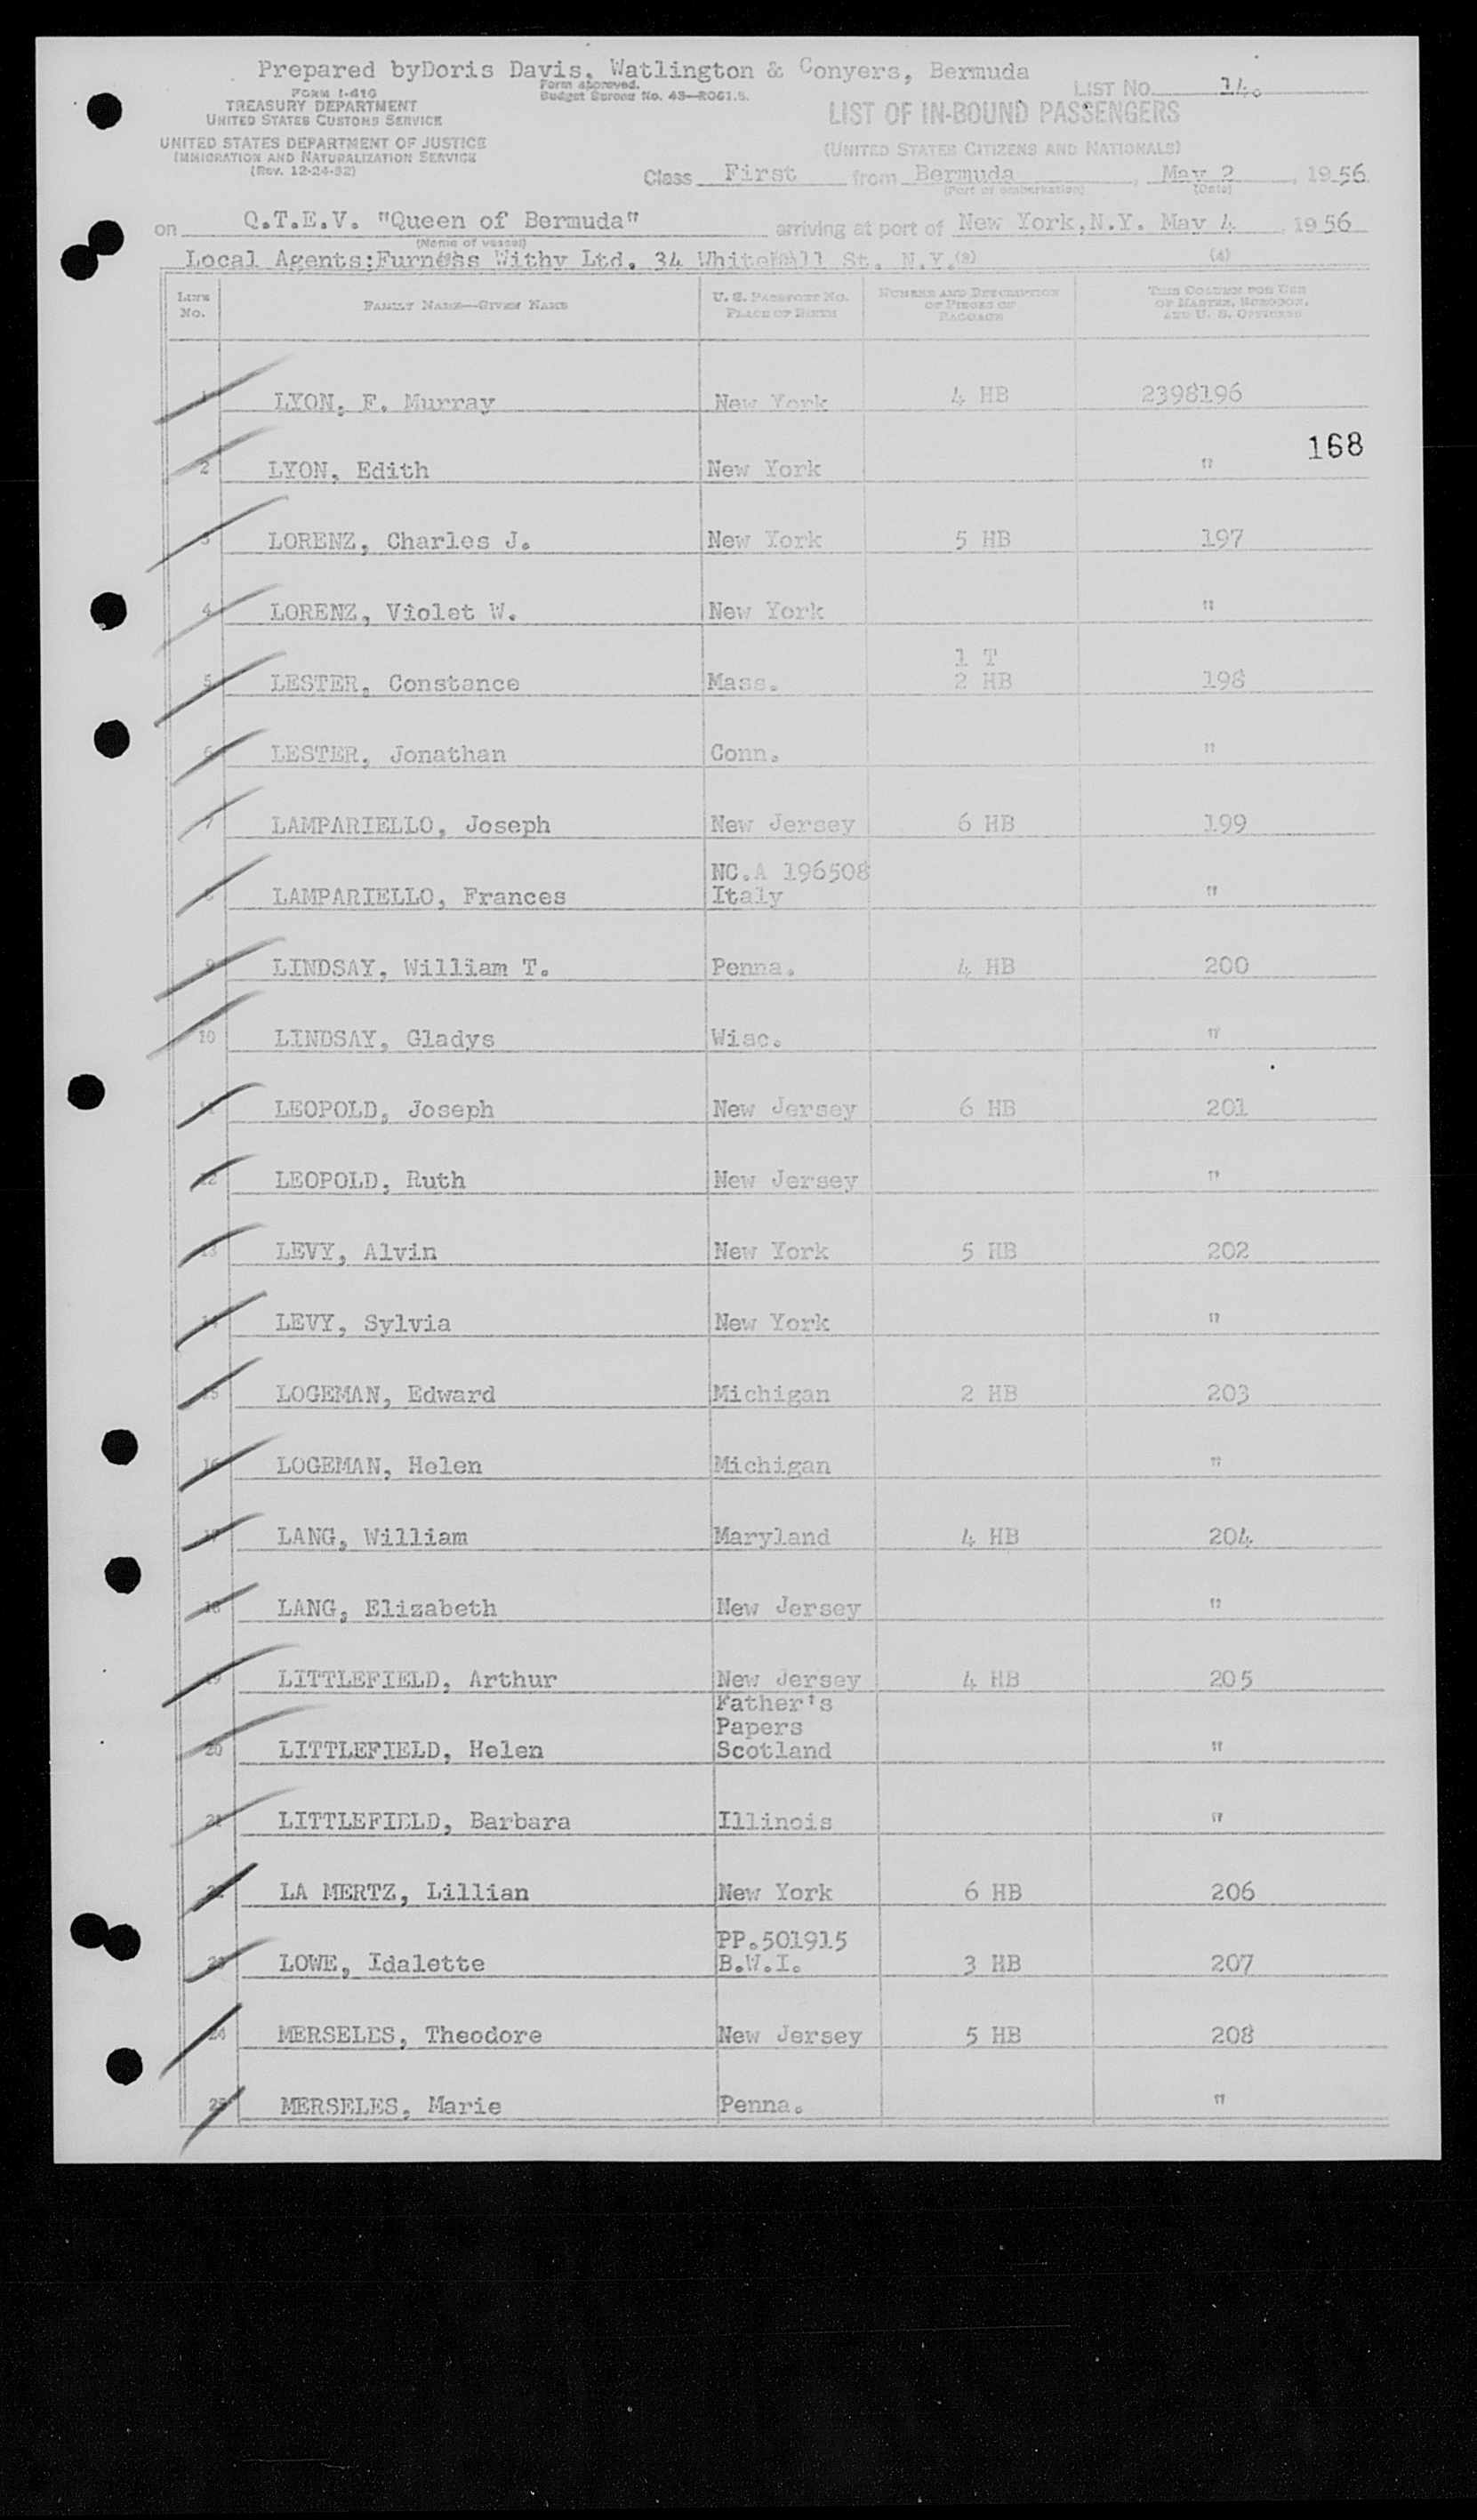 Prepared byDoris Davis, Watlington & Conyers, Bermuda
FORM I-418
Form approved.
Budget Bureau No. 43—R061.5.
LIST NO. 14.
TREASURY DEPARTMENT
UNITED STATES CUSTOMS SERVICE
LIST OF IN-BOUND PASSENGERS
UNITED STATES DEPARTMENT OF JUSTICE
IMMIGRATION AND NATURALIZATION SERVICE
(Rev. 12-24-52)
(UNITED STATES CITIZENS AND NATIONALS)
Class First from Bermuda, May 2, 1956
(Port of embarkation) (Date)
on Q.T.E.V. "Queen of Bermuda" arriving at port of New York,N.Y. May 4, 1956
(Name of vessel)
Local Agents:Furness Withy Ltd. 34 Whitehall St. N.Y. (3) (4)
LINE No. FAMILY NAME—GIVEN NAME U. S. PASSPORT NO. PLACE OF BIRTH NUMBER AND DESCRIPTION OF PIECES OF BAGGAGE THIS COLUMN FOR USE OF MASTER, SURGEON, AND U. S. OFFICERS
1 LYON, F. Murray New York 4 HB 2398196
168
2 LYON, Edith New York "
3 LORENZ, Charles J. New York 5 HB 197
4 LORENZ, Violet W. New York "
1 T
5 LESTER, Constance Mass. 2 HB 198
6 LESTER, Jonathan Conn. "
7 LAMPARIELLO, Joseph New Jersey 6 HB 199
NC.A 196508
8 LAMPARIELLO, Frances Italy "
9 LINDSAY, William T. Penna. 4 HB 200
10 LINDSAY, Gladys Wisc. "
11 LEOPOLD, Joseph New Jersey 6 HB 201
12 LEOPOLD, Ruth New Jersey "
13 LEVY, Alvin New York 5 HB 202
14 LEVY, Sylvia New York "
15 LOGEMAN, Edward Michigan 2 HB 203
16 LOGEMAN, Helen Michigan "
17 LANG, William Maryland 4 HB 204
18 LANG, Elizabeth New Jersey "
19 LITTLEFIELD, Arthur New Jersey 4 HB 205
Father's
Papers
20 LITTLEFIELD, Helen Scotland "
21 LITTLEFIELD, Barbara Illinois "
22 LA MERTZ, Lillian New York 6 HB 206
PP.501915
23 LOWE, Idalette B.W.I. 3 HB 207
24 MERSELES, Theodore New Jersey 5 HB 208
25 MERSELES, Marie Penna. "